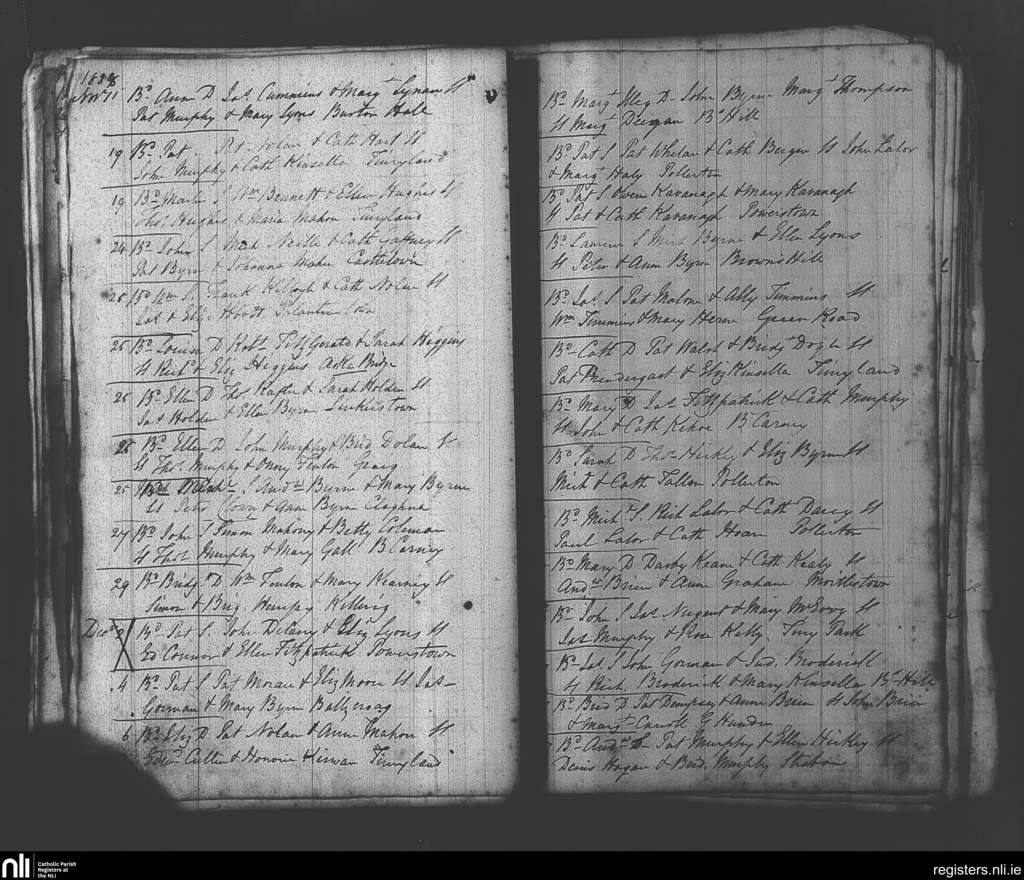 1838
Novr 11 Bd Ann D Jas Cummins & Margt Lynam St
Pat Murphy & Mary Lyons Burton Hall
19 Bd Pat Pat Nolan & Cath Hart St
John Murphy & Cath Kinsella Tinryland
19 Bd Martin S Wm Bennett & Ellen Hughes St
Thos Hughes & Maria Mahon Tinryland
24 Bd John S Mich Neill & Cath Gaffney St
Pat Byrne & Johanna Maher Castletown
25 Bd Wm S. Frank & Cath Nolan St
Jas & Eliz Abbott
25 Bd Louisa D Robt FitzGerald & Sarah Higgins
St Richd & Eliz Higgins Bridge
25 Bd Ellen D Thos & Sarah Holden St
Jas Holden & Ellen Byrne Linkerstown
25 Bd Ellen D John Murphy & Brid Dolan St
St Thos Murphy & Fenton Graig
25 Bd Michl S Andw Byrne & Mary Byrne
St Peter & Ann Byrne Cloghna
27 Bd John S Simon Mahony & Betty Coleman
St Thos Murphy & Mary Gall B Carney
29 Bd Bridgt D Wm Fenlon & Mary Kearney St
Simon & Brig Hempy
Decr 2 Bd Pat S. John Delany & Eliz Lyons St
Ed Connor & Ellen Fitzpatrick Powerstown
4 Bd Pat S Pat Moran & Eliz Moore St Jas
Gorman & Mary Byrne Ballycroag
6 Bd Eliz D Pat Nolan & Ann Mahon St
Edwd Cullen & Honour Kirwan Tinryland
Bd Margt Illeg D John Byrne Margt Thompson
St Margt Deegan Bs Hill
Bd Pat S Pat Whelan & Cath Berger St John Lalor
& Marg Haly Pollerton
Bd Pat S Owen Kavanagh & Mary Kavanagh
St Pat & Cath Kavanagh Powerstown
Bd Laurence S Mich Byrne & Ellen Lyons
St Peter & Ann Byrne Browns Hill
Bd Jas S Pat Malone & Ally Timmins St
Wm Timmins & Mary Green Road
Bd Cath D Pat Walsh & Bridgt Doyle St
Pat Prendergast & Eliz Kinsella Tinryland
Bd Mary D Jas Fitzpatrick & Cath Murphy
St John & Cath Kehoe B Carney
Bd Sarah D Thos Hickey & Eliz Byrne St
Mich & Cath Fallon Pollerton
Bd Mich S Rich Lalor & Cath Darcy St
Paul Lalor & Cath Hoare Pollerton
Bd Mary D Darby Keane & Cath Kealy St
Andw Brien & Anne Graham Mortlestown
Bd John S Jas Nugent & Mary McEvoy St
Jas Murphy & Rose Kelly Tiny Park
Bd Jas S John Gorman & Jud. Broderick
St Rich Broderick & Mary Kinsella Bs Hill
Bd Brid D Pat Dempsey & Anne Brien St John Brien
& Margt Carroll G Hunden
Bd Andw S Pat Murphy & Ellen Hickey St
Denis Hogan & Brid. Murphy
nli
Catholic Parish
Registers at
the NLI
registers.nli.ie